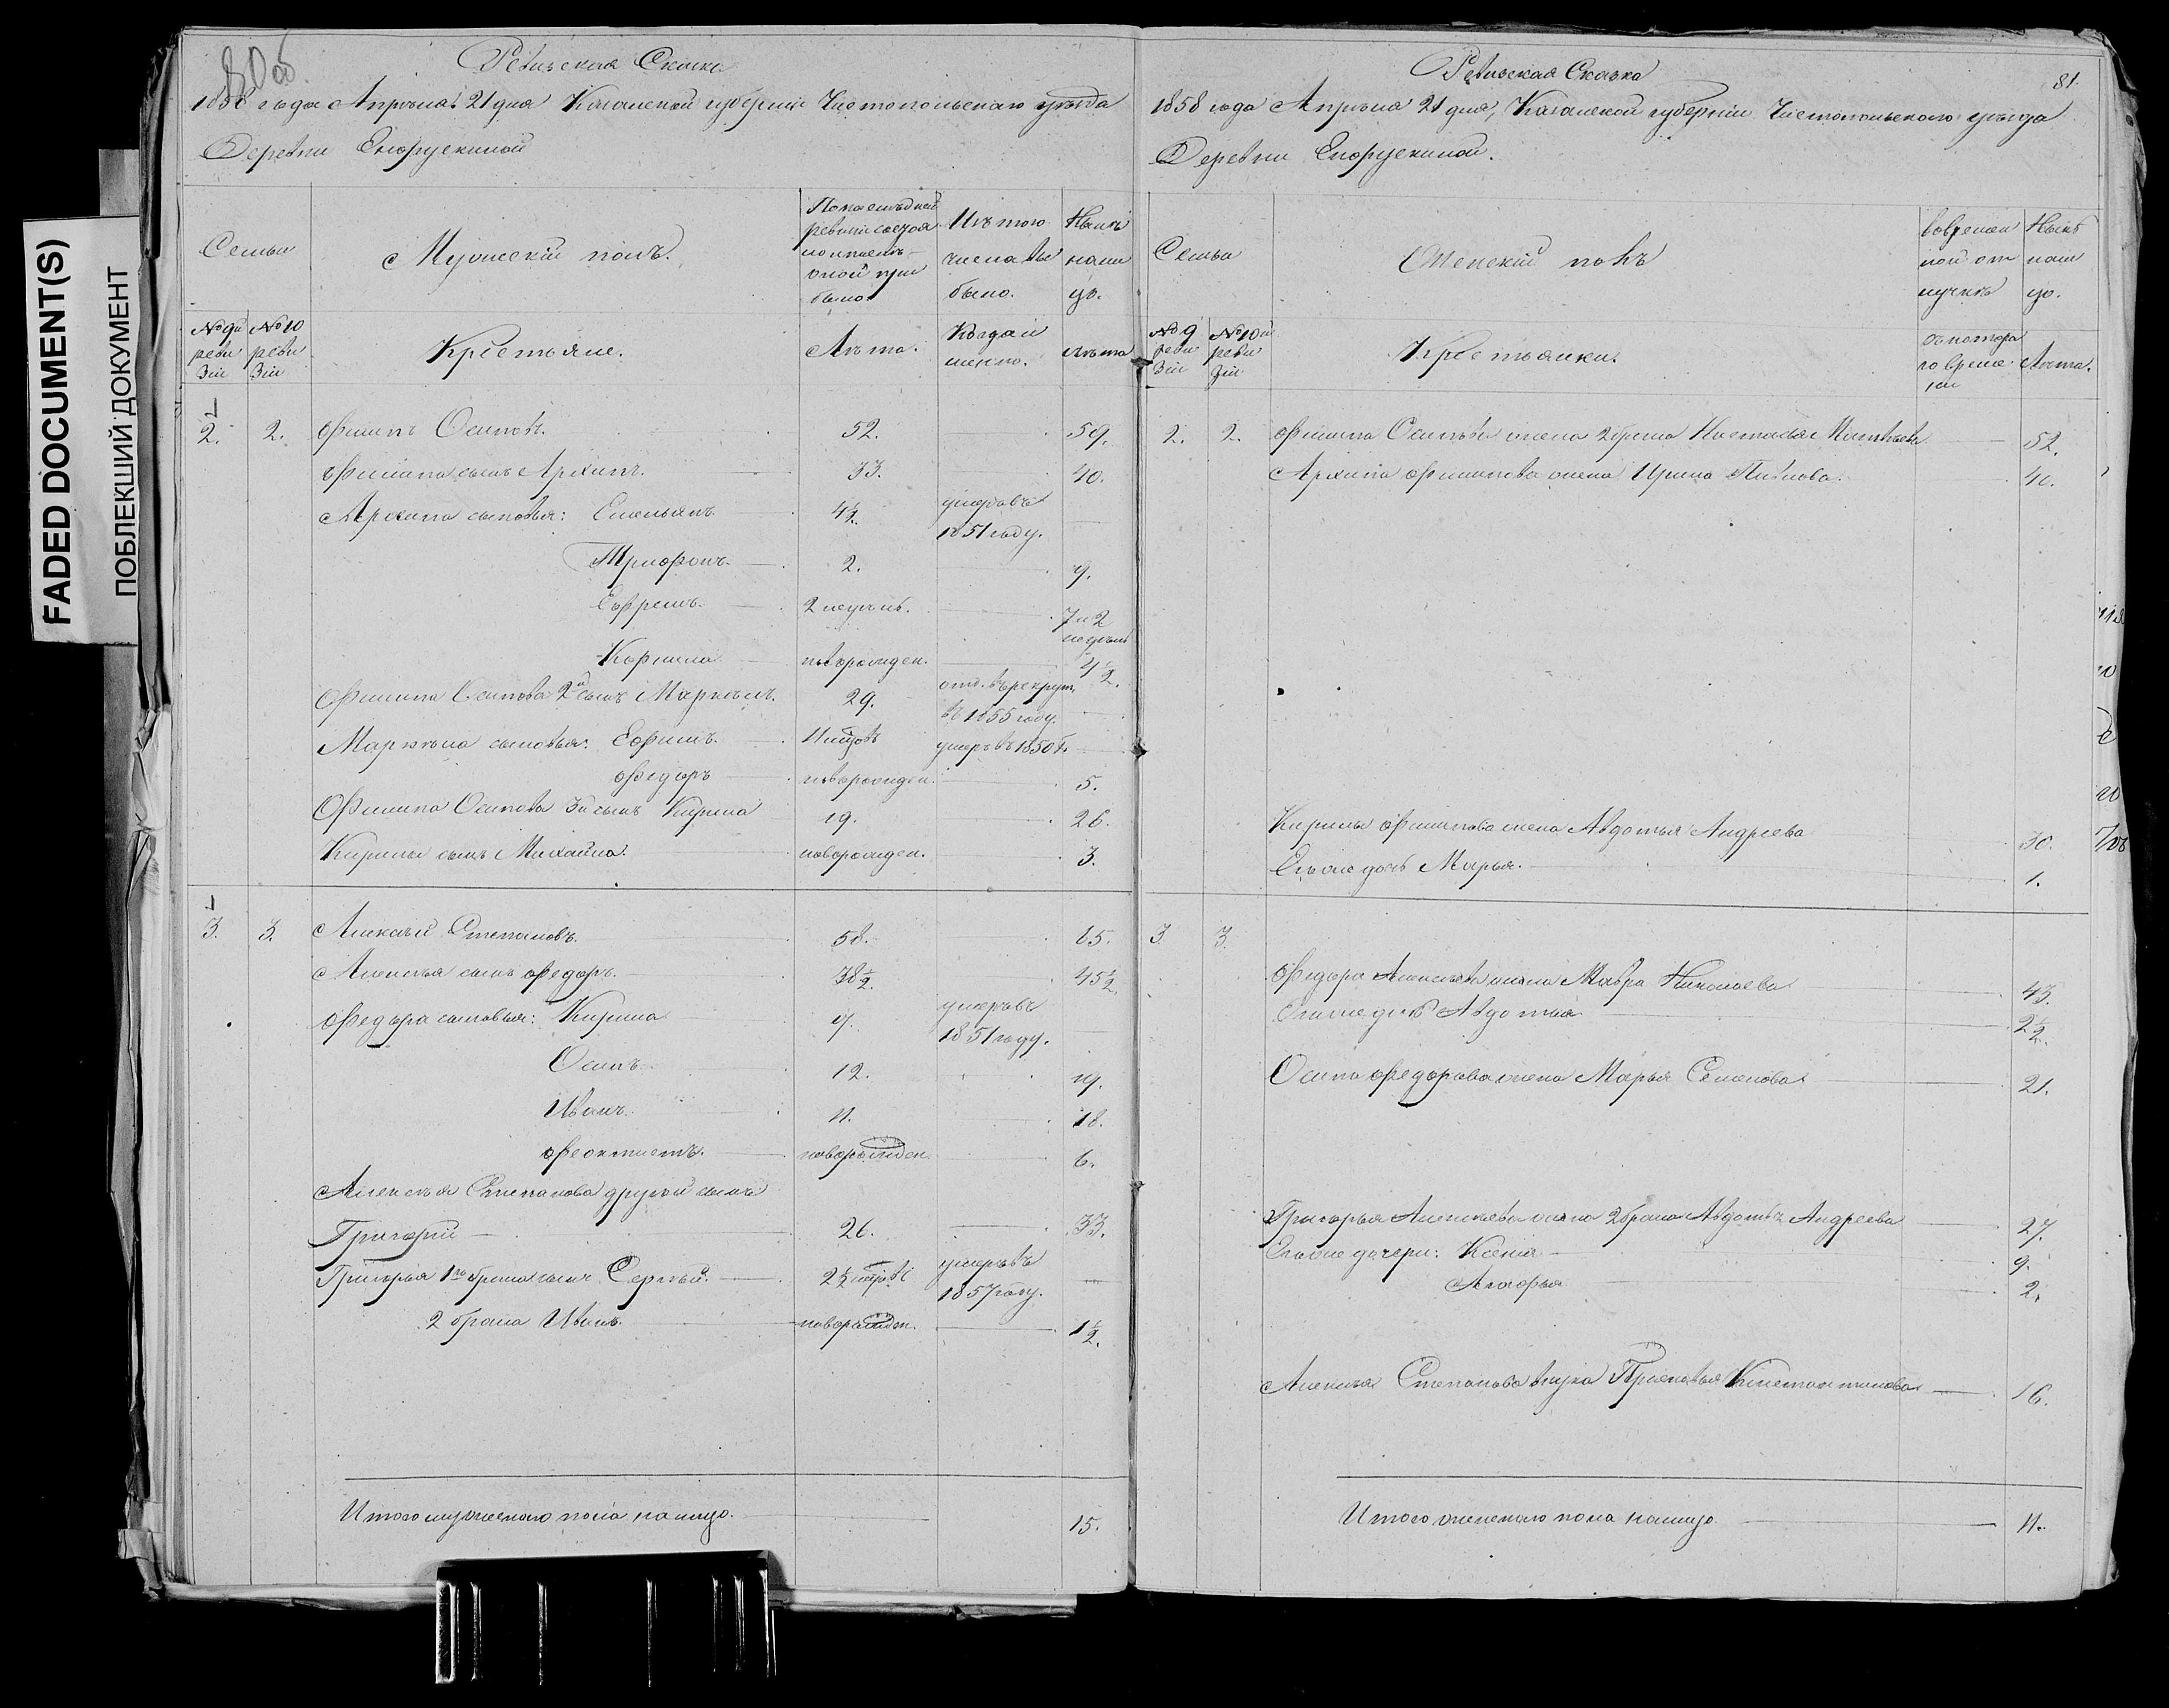 FADED DOCUMENT(S)
ПОБЛЕКШИЙ ДОКУМЕНТ
80об.
Ревизская Сказка
1858 года Апрѣля 21 дня Казанской губернии Чистопольскаго уѣзда
Деревни Енорускиной
Семьи
Мужескій полъ.
По последней ревизіи состояло и после оной прибыло.
Изъ того числа выбыло.
Нынѣ на лицо.
№ 9й ревизіи
№ 10 ревизіи
Крестьяне.
Лѣта.
Когда именно.
Лѣта
2. 2. Филипъ Осиповъ. 52. 59.
Филипа сынъ Архипъ. 33. 40.
Архипа сыновья: Емельянъ 4½ умеръ въ 1851 году.
Трифонъ. 2. 9.
Ефремъ. 2 недѣль. 7 и 2 недѣль
Корнила новорожден. 4½.
Филипа Осипова 2й сынъ Маркелъ. 29. отд. въ рекрут. въ 1855 году.
Маркела сыновья: Ефимъ. умеръ въ 1850 г.
Федоръ новорожден. 5.
Филипа Осипова 3й сынъ Кирила 19. 26.
Кирилы сынъ Михайла. новорожден. 3.
3. 3. Алексѣй Степановъ. 58. 65.
Алексѣя сынъ Федоръ. 38½. 45½.
Федора сыновья: Кирила 9. умеръ въ 1851 году.
Осипъ. 12. 19.
Иванъ. 11. 18.
Феоктистъ. новорожден. 6.
Алексѣя Степанова другой сынъ
Григорій 26. 33.
Григорья 1го брака сынъ Сергѣй. умеръ въ 1857 году.
2 брака Иванъ новорожден. 1½.
Итого мужескаго пола налицо. 15.
81.
Ревизская Сказка
1858 года Апрѣля 21 дня, Казанской губерніи Чистопольскаго уѣзда
Деревни Енорускиной.
Семьи
Женскій полъ
во временной отлучкѣ
Нынѣ на лицо.
№ 9 ревизіи
№ 10й ревизіи
Крестьянки.
съ котораго времени
Лѣта.
2. 2. Филипа Осипова жена 2 брака Настасья Матвѣева 52.
Архипа Филипова жена Ирина 40.
Кирилы Филипова жена Авдотья Андреева 30.
Ихъ же дочь Марья. 1.
3. 3. Федора Алексѣева жена Мавра Николаева 43.
Ихъ же дочь Авдотья 2½.
Осипа Федорова жена Марья Семенова 21.
Григорья Алексѣева жена 2 брака Авдотья Андреева 27.
Ихъ же дочери: Ксенія 9.
Агафья 2.
Алексѣя Степанова внука Прасковья Константинова 16.
Итого женскаго пола налицо 11.